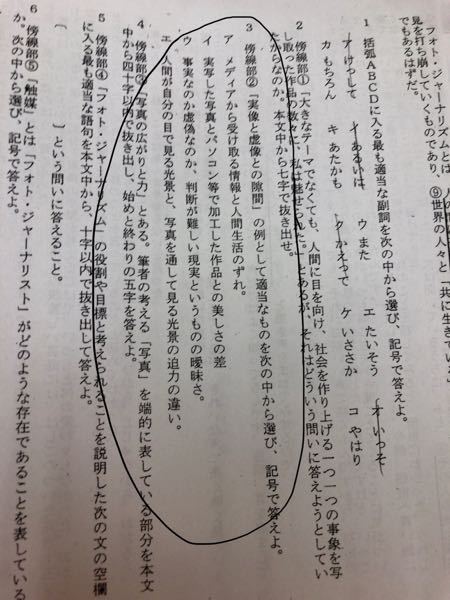 フォト・ジャーナリズムとは
見を打ち崩していくものであり、⑨世界の人々と「共に生きている」
でもあるはずだ。
1 括弧ABCDに入る最も適当な副詞を次の中から選び、記号で答えよ。
ア けっして イ あるいは ウ また エ たいそう オ いっそ
カ もちろん キ あたかも ク かえって ケ いささか コ やはり
2 傍線部①「大きなテーマでなくても、人間に目を向け、社会を作り上げる一つ一つの事象を写
し取った作品の数々に、私は魅せられた。」とあるが、それはどういう問いに答えようとしてい
たからなのか。本文中から七字で抜き出せ。
3 傍線部②「実像と虚像との隙間」の例として適当なものを次の中から選び、記号で答えよ。
ア メディアから受け取る情報と人間生活のずれ。
イ 実写した写真とパソコン等で加工した作品との美しさの差
ウ 事実なのか虚偽なのか、判断が難しい現実というものの曖昧さ。
エ 人間が自分の目で見る光景と、写真を通して見る光景の迫力の違い。
4 傍線部③「写真の広がりと力」とある。筆者の考える「写真」を端的に表している部分を本文
中から四十字以内で抜き出し、始めと終わりの五字を答えよ。
5 傍線部④「フォト・ジャーナリズム」の役割や目標と考えられることを説明した次の文の空欄
に入る最も適当な語句を本文中から、十字以内で抜き出して答えよ。
〔 〕という問いに答えること。
6 傍線部⑤「触媒」とは「フォト・ジャーナリスト」がどのような存在であることを表している
か。次の中から選び、記号で答えよ。